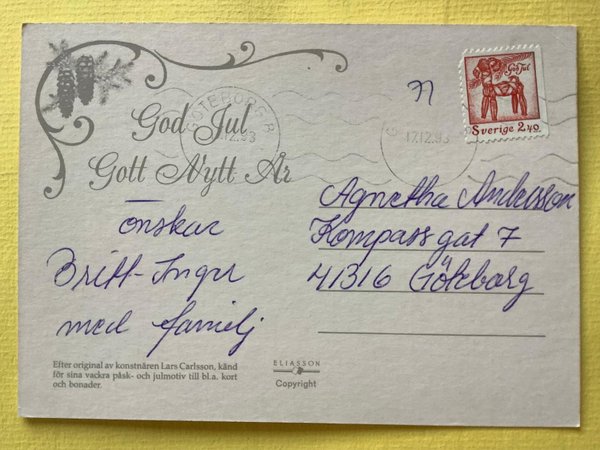 God Jul
Gott Nytt År
önskar
Britt-Inger
med familj
Efter original av konstnären Lars Carlsson, känd
för sina vackra påsk- och julmotiv till bl.a. kort
och bonader.
ELIASSON
Copyright
GÖTEBORG
.12.93
17.12.93
God Jul
Sverige 2,40
Agnetha Andersson
Kompassgat 7
41316 Göteborg